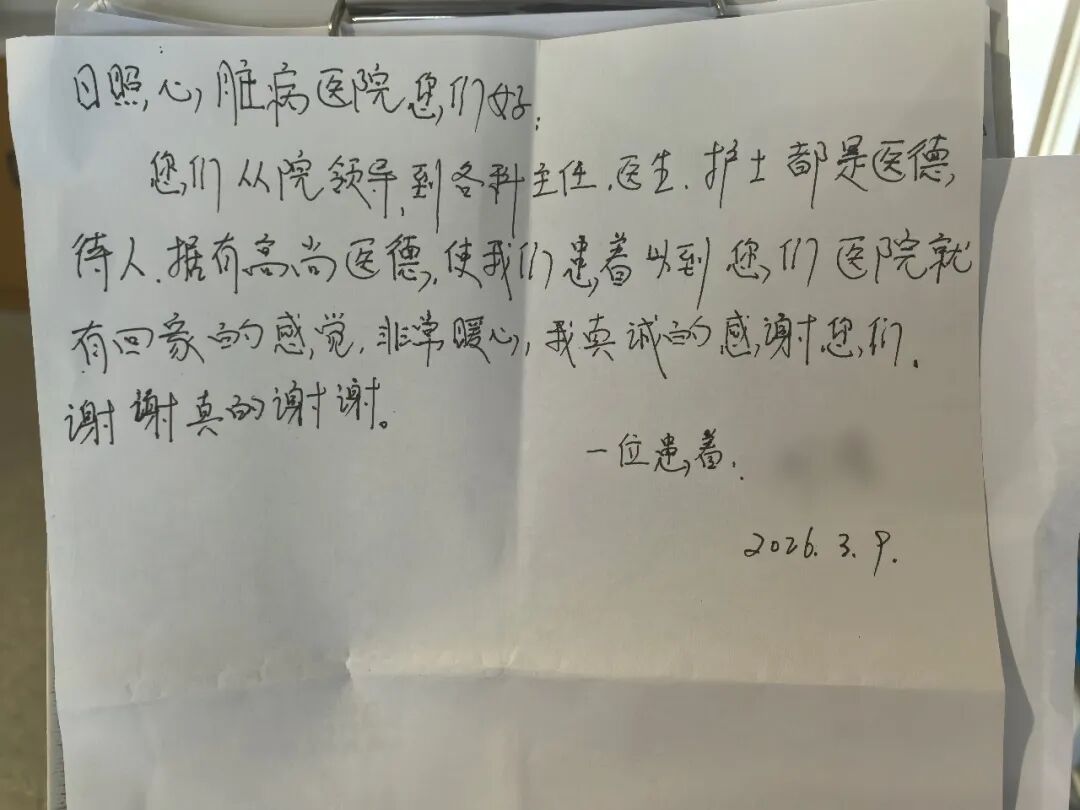 日照心脏病医院您们好:
您们从院领导,到各科主任.医生.护士都是医德,
待人.据有高尚医德,使我们患着以到您们医院就
有回家的感觉.非常暖心,我真诚的感谢您们.
谢谢真的谢谢。
一位患着.
2026.3.9.